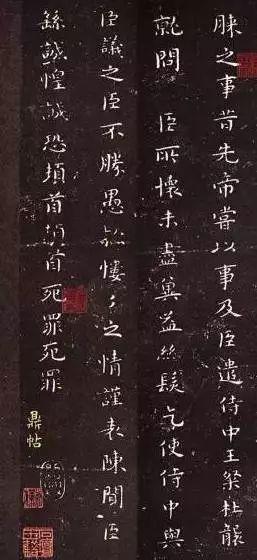 之事昔先帝嘗以事及臣遣侍中王粲杜襲
就問 臣所懷未盡奚益絲髮乞使侍中與
臣議之臣不勝愚款慺々之情謹表陳聞臣
繇誠惶誠恐頓首頓首死罪死罪
鼎帖